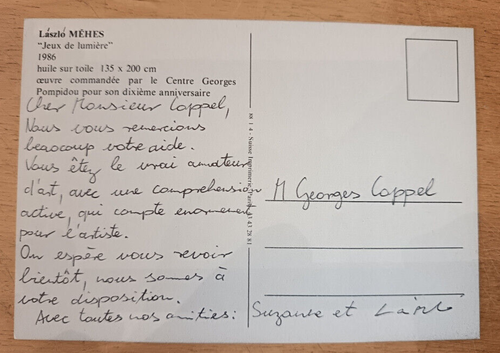 László MÉHES
"Jeux de lumière"
1986
huile sur toile 135 x 200 cm
œuvre commandée par le Centre Georges
Pompidou pour son dixième anniversaire
Cher Monsieur Coppel,
Nous vous remercions
beaucoup votre aide.
Vous êtez le vrai amateur
d'art, avec une comprehension
active, qui compte enormement
pour l'artiste.
On espère vous revoir
bientôt, nous somes à
votre disposition.
Avec toutes nos amitiés:
M Georges Coppel
Suzanne et László